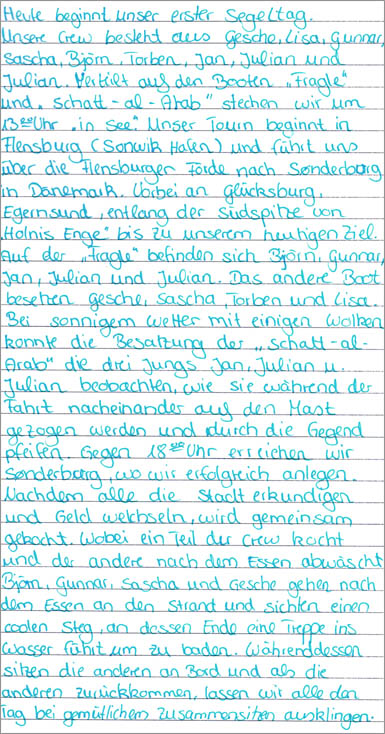 Heute beginnt unser erster Segeltag.
Unsere Crew besteht aus Gesche, Lisa, Gunnar,
Sascha, Björn, Torben, Jan, Julian und
Julian. Verteilt auf den Booten „Fragle"
und „Schatt-al-Arab" stechen wir um
13⁰⁰ Uhr „in See". Unser Tourn beginnt in
Flensburg (Sonwik Hafen) und führt uns
über die Flensburger Förde nach Sønderborg
in Dänemark. Vorbei an Glücksburg,
Egernsund, entlang der Südspitze von
„Holnis Enge" bis zu unserem heutigen Ziel.
Auf der „Fragle" befinden sich Björn, Gunnar,
Jan, Julian und Julian. Das andere Boot
besetzen Gesche, Sascha, Torben und Lisa.
Bei sonnigem Wetter mit einigen Wolken
konnte die Besatzung der „Schatt-al-
Arab" die drei Jungs Jan, Julian u.
Julian beobachten, wie sie während der
Fahrt nacheinander auf den Mast
gezogen werden und durch die Gegend
pfeifen. Gegen 18⁰⁰ Uhr erreichen wir
Sønderborg, wo wir erfolgreich anlegen.
Nachdem alle die Stadt erkundigen
und Geld wechseln, wird gemeinsam
gekocht. Wobei ein Teil der Crew kocht
und der andere nach dem Essen abwäscht
Björn, Gunnar, Sascha und Gesche gehen nach
dem Essen an den Strand und sichten einen
coolen Steg, an dassen Ende eine Treppe ins
Wasser führt um zu baden. Währenddessen
sitzen die anderen an Bord und als die
anderen zurückkommen, lassen wir alle den
Tag bei gemütlichem Zusammensitzen ausklingen.